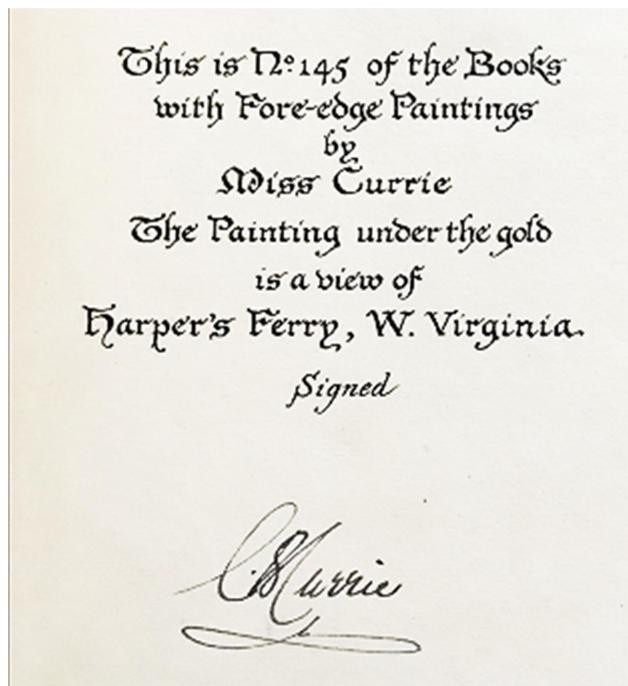 This is Nº 145 of the Books
with Fore-edge Paintings
by
Miss Currie
The Painting under the gold
is a view of
Harper's Ferry, W. Virginia.
Signed
C. B. Currie